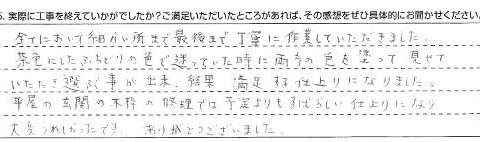 5. 実際に工事を終えていかがでしたか？ご満足いただいたところがあれば、その感想をぜひ具体的にお聞かせください。
全てにおいて細かい所まで最後まで丁寧に作業していただきました。
茶色にしたふちどりの色で迷っていた時に両方の色を塗って見せて
いただき選ぶ事が出来、結果 満足する仕上りになりました。
平屋の玄関の木枠の修理では予定よりもすばらしい仕上りになり
大変うれしかったです。 ありがとうございました。